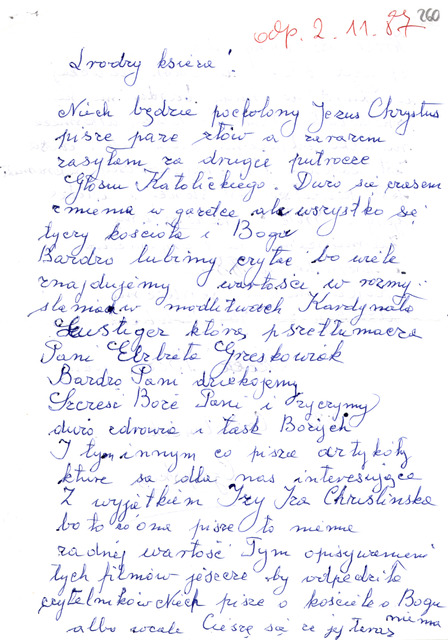 260
odp. 2. 11. 87
Drodzy księża!
Niech będzie pocholony Jezus Chrystus
pisze pare słów a zarazem
zasyłam za drugie putrocze
Głosu Katolickiego. Duzo się czasem
zmienia w gazetce ale wszystko się
tyczy kościoła i Boga
Bardzo lubimy czytac bo wiele
znajdujemy wartości w rozmy-
slaniach modlitwach Kardynała
Lustiger które pszetłumacza
Pani Elzbieta Greskowiak
Bardzo Pani dziekojemy
Szczesc Boze Pani i zyczymy
duzo zdrowia i łask Bozych
I tym innym co pisza artykóły
kture sa dla nas interesujące
Z wyjątkiem Izy Iza Chruslinska
bo to co ona pisze to niema
zadnej wartośc Tym opisywaniem
tych filmów jeszcze by odpedziła
czytelników Niech pisze o kościele o Bogu
albo wcale Ciesze się ze jej teraz niema